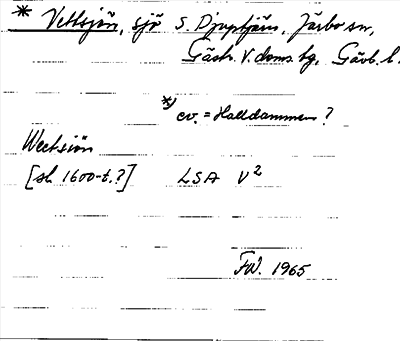 * Vettsjön, sjö S. Djuptjärn, Järbo sn,
Gästr. V. doms. tg, Gävl. l.
*) ev. = Halldammen?
Weetsiön
[sl. 1600-t.?] LSA V2
FW. 1965